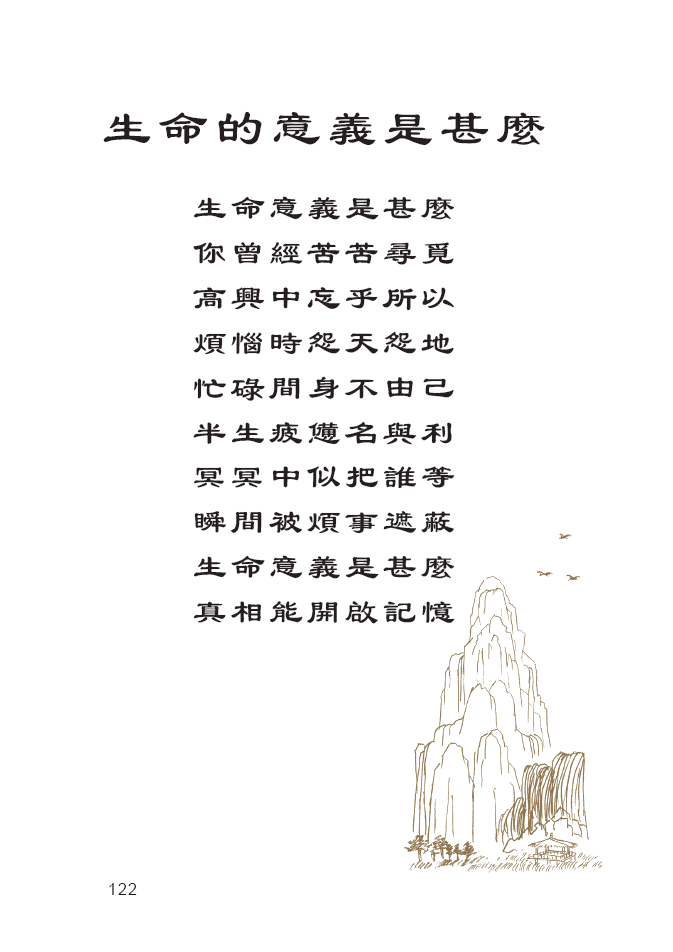 生命的意義是甚麼
生命意義是甚麼
你曾經苦苦尋覓
高興中忘乎所以
煩惱時怨天怨地
忙碌間身不由己
半生疲憊名與利
冥冥中似把誰等
瞬間被煩事遮蔽
生命意義是甚麼
真相能開啟記憶
122